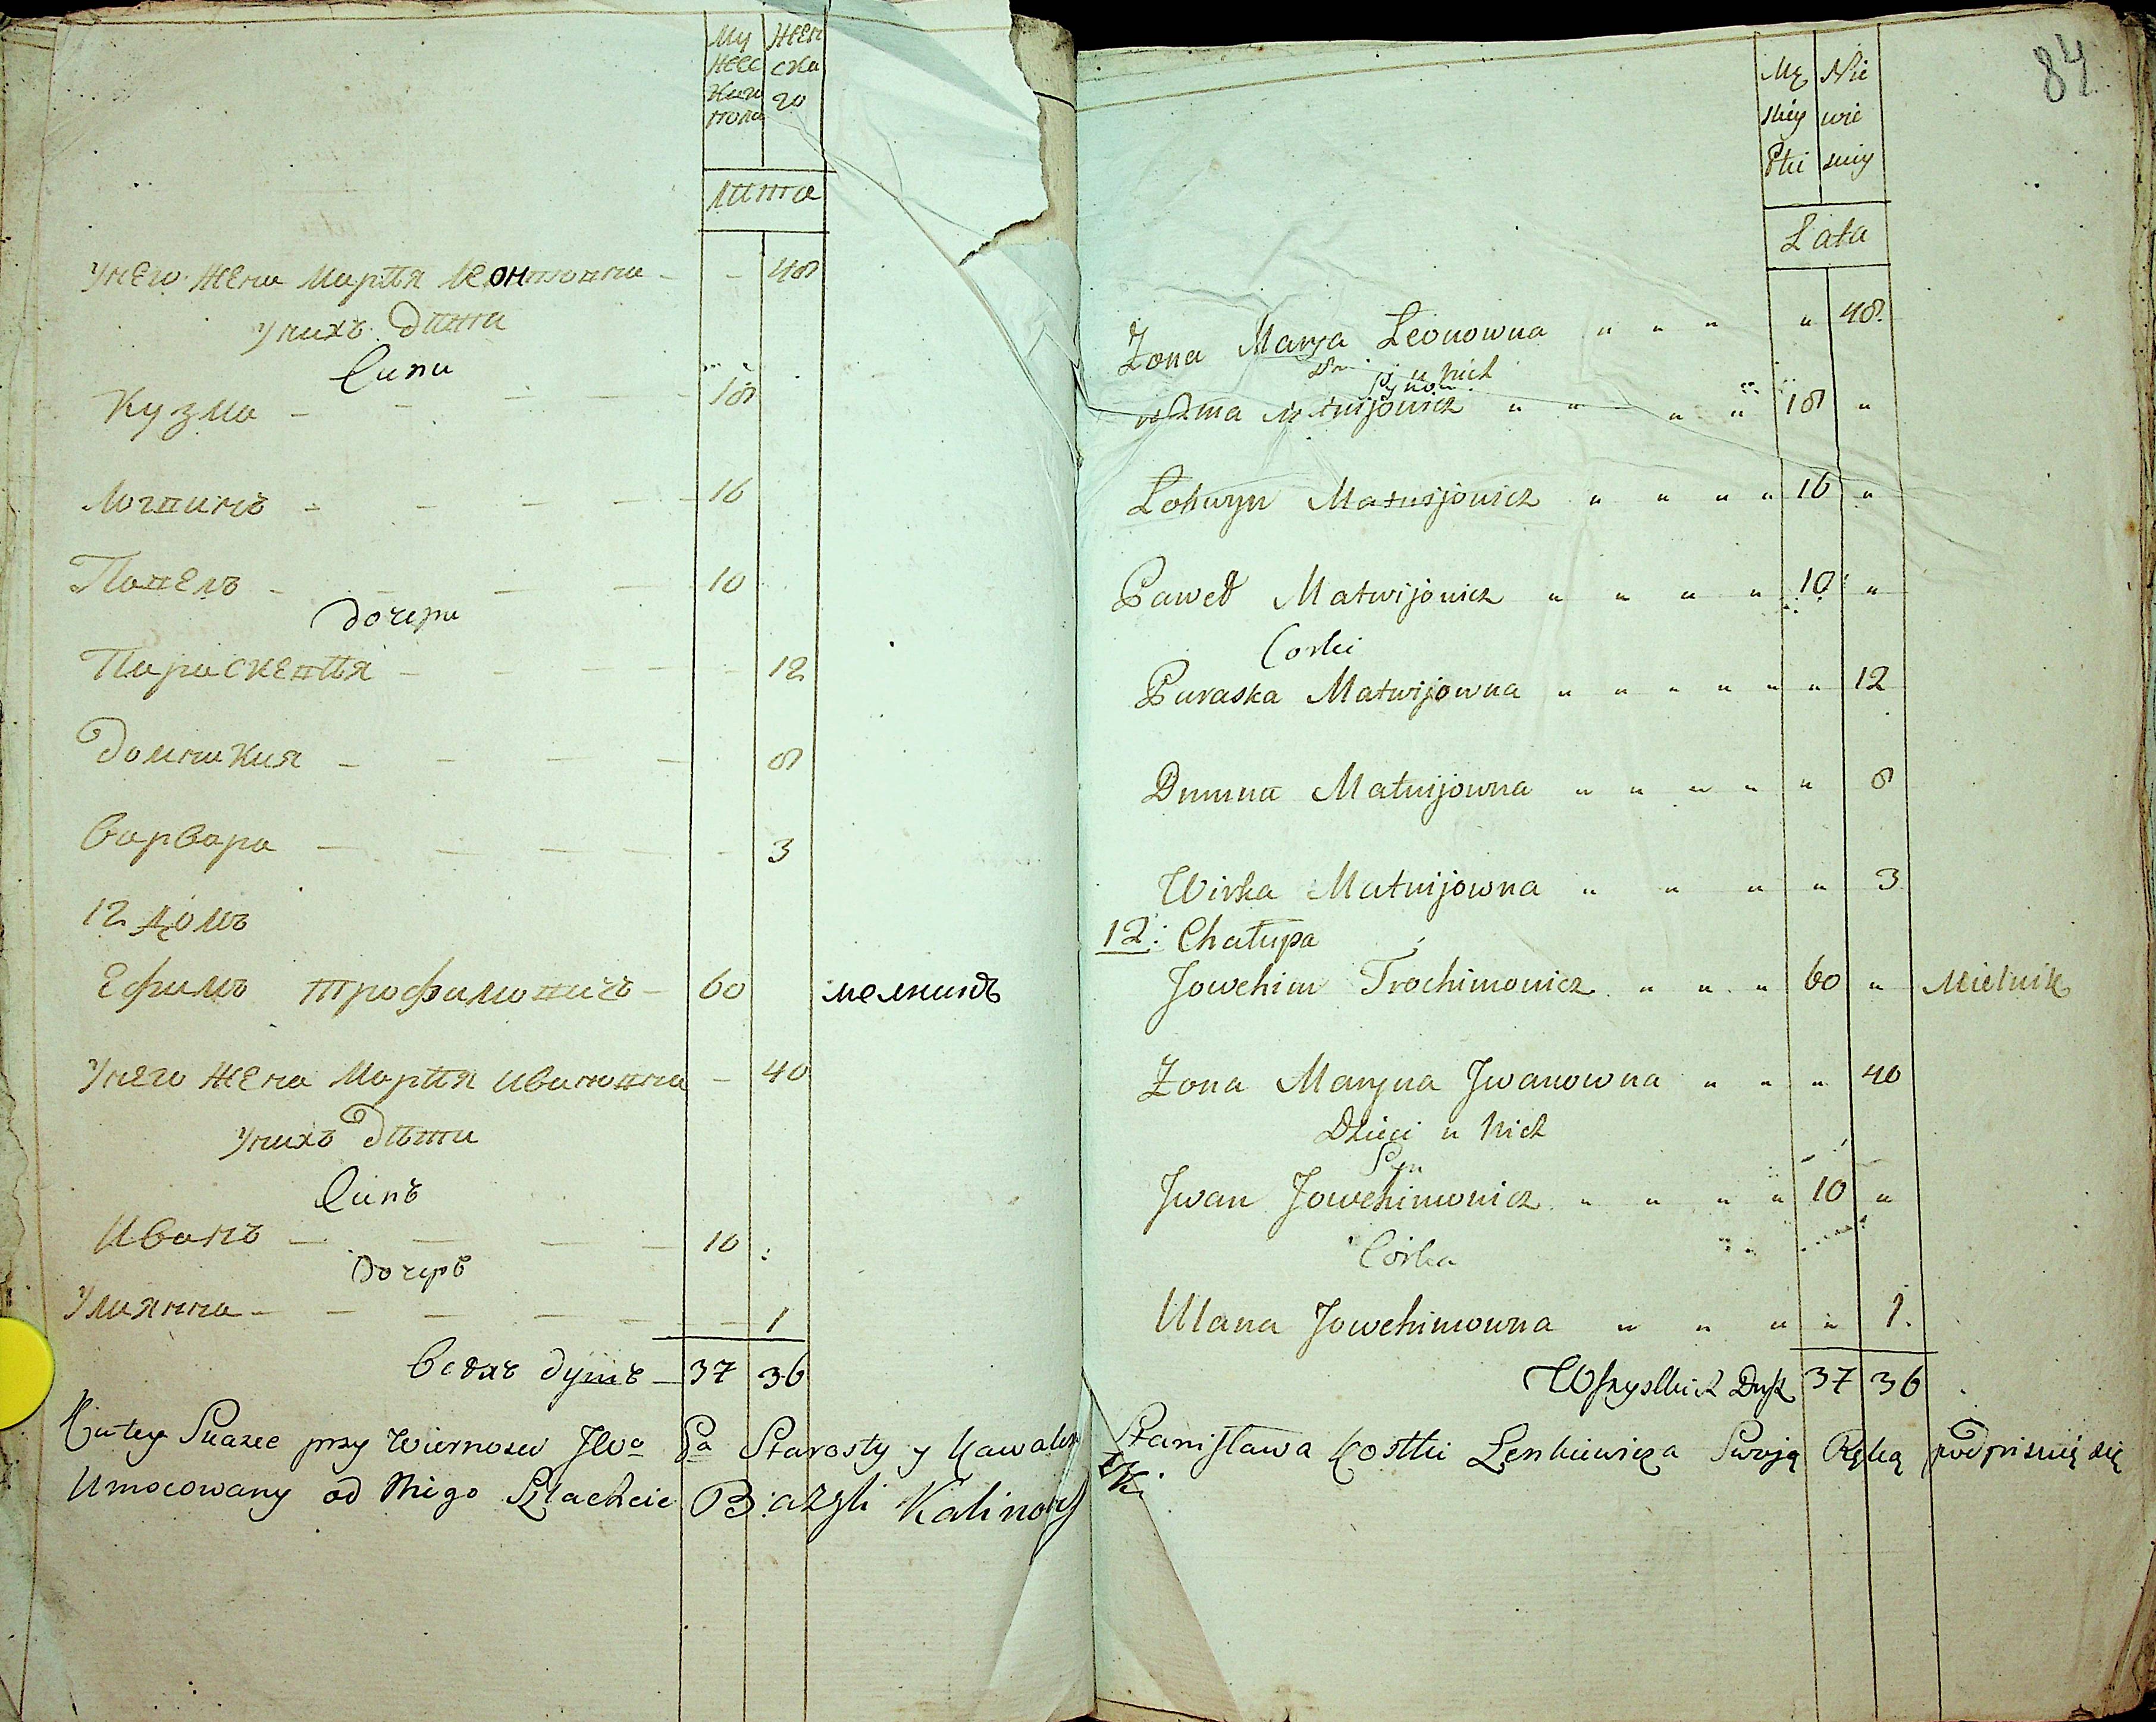 Му Жен
жес ска
каго го
пола
лита
У него жена Марпя Леонтовна - - 48
У нихъ дити
Сини
Кузма - - - - 18
Логвинъ - - - - 16
Павелъ - - - - 10
дочери
Параскевпя - - - - 12
Домникия - - - - 8
Варвара - - - - 3
12 домъ
Ефимъ Трофимовичъ - 60 мелникъ
У него жена Марпя Ивановна - 40
У нихъ дѣти
Синъ
Иванъ - - - - 10
дочеръ
Улиянна - - - - 1
Всѣхъ душъ - 37 36
84
Mę Nie
skiey wie
Płci sciey
Lata
Zona Marya Leonowna " " " " 48.
u nich
Synow
Matwijowicz " " " " 18 "
Lohwyn Matwijowicz " " " " 16 "
Paweł Matwijowicz " " " " 10 "
Corki
Paraska Matwijowna " " " " " " 12
Dumna Matwijowna " " " " " 8
Wirka Matwijowna " " " " 3
12: Chałupa
Jowchim Trochimowicz " " " 60 " Mielnik
Zona Maryna Jwanowna " " " 40
Dzieci u Nich
Syn
Jwan Jowchimowicz " " " " 10 "
Córka
Ulana Jowchimowna " " " " 1.
Wszystkich Dusz 37 36
Na tey Skazce przy Wiernosci JWo Pa Starosty y Kawalera Stanisława Kostki Lenkiewicza Swoją Ręką podpisuię się
Umocowany od Niego Szlachcic Bazyli Kalinowski